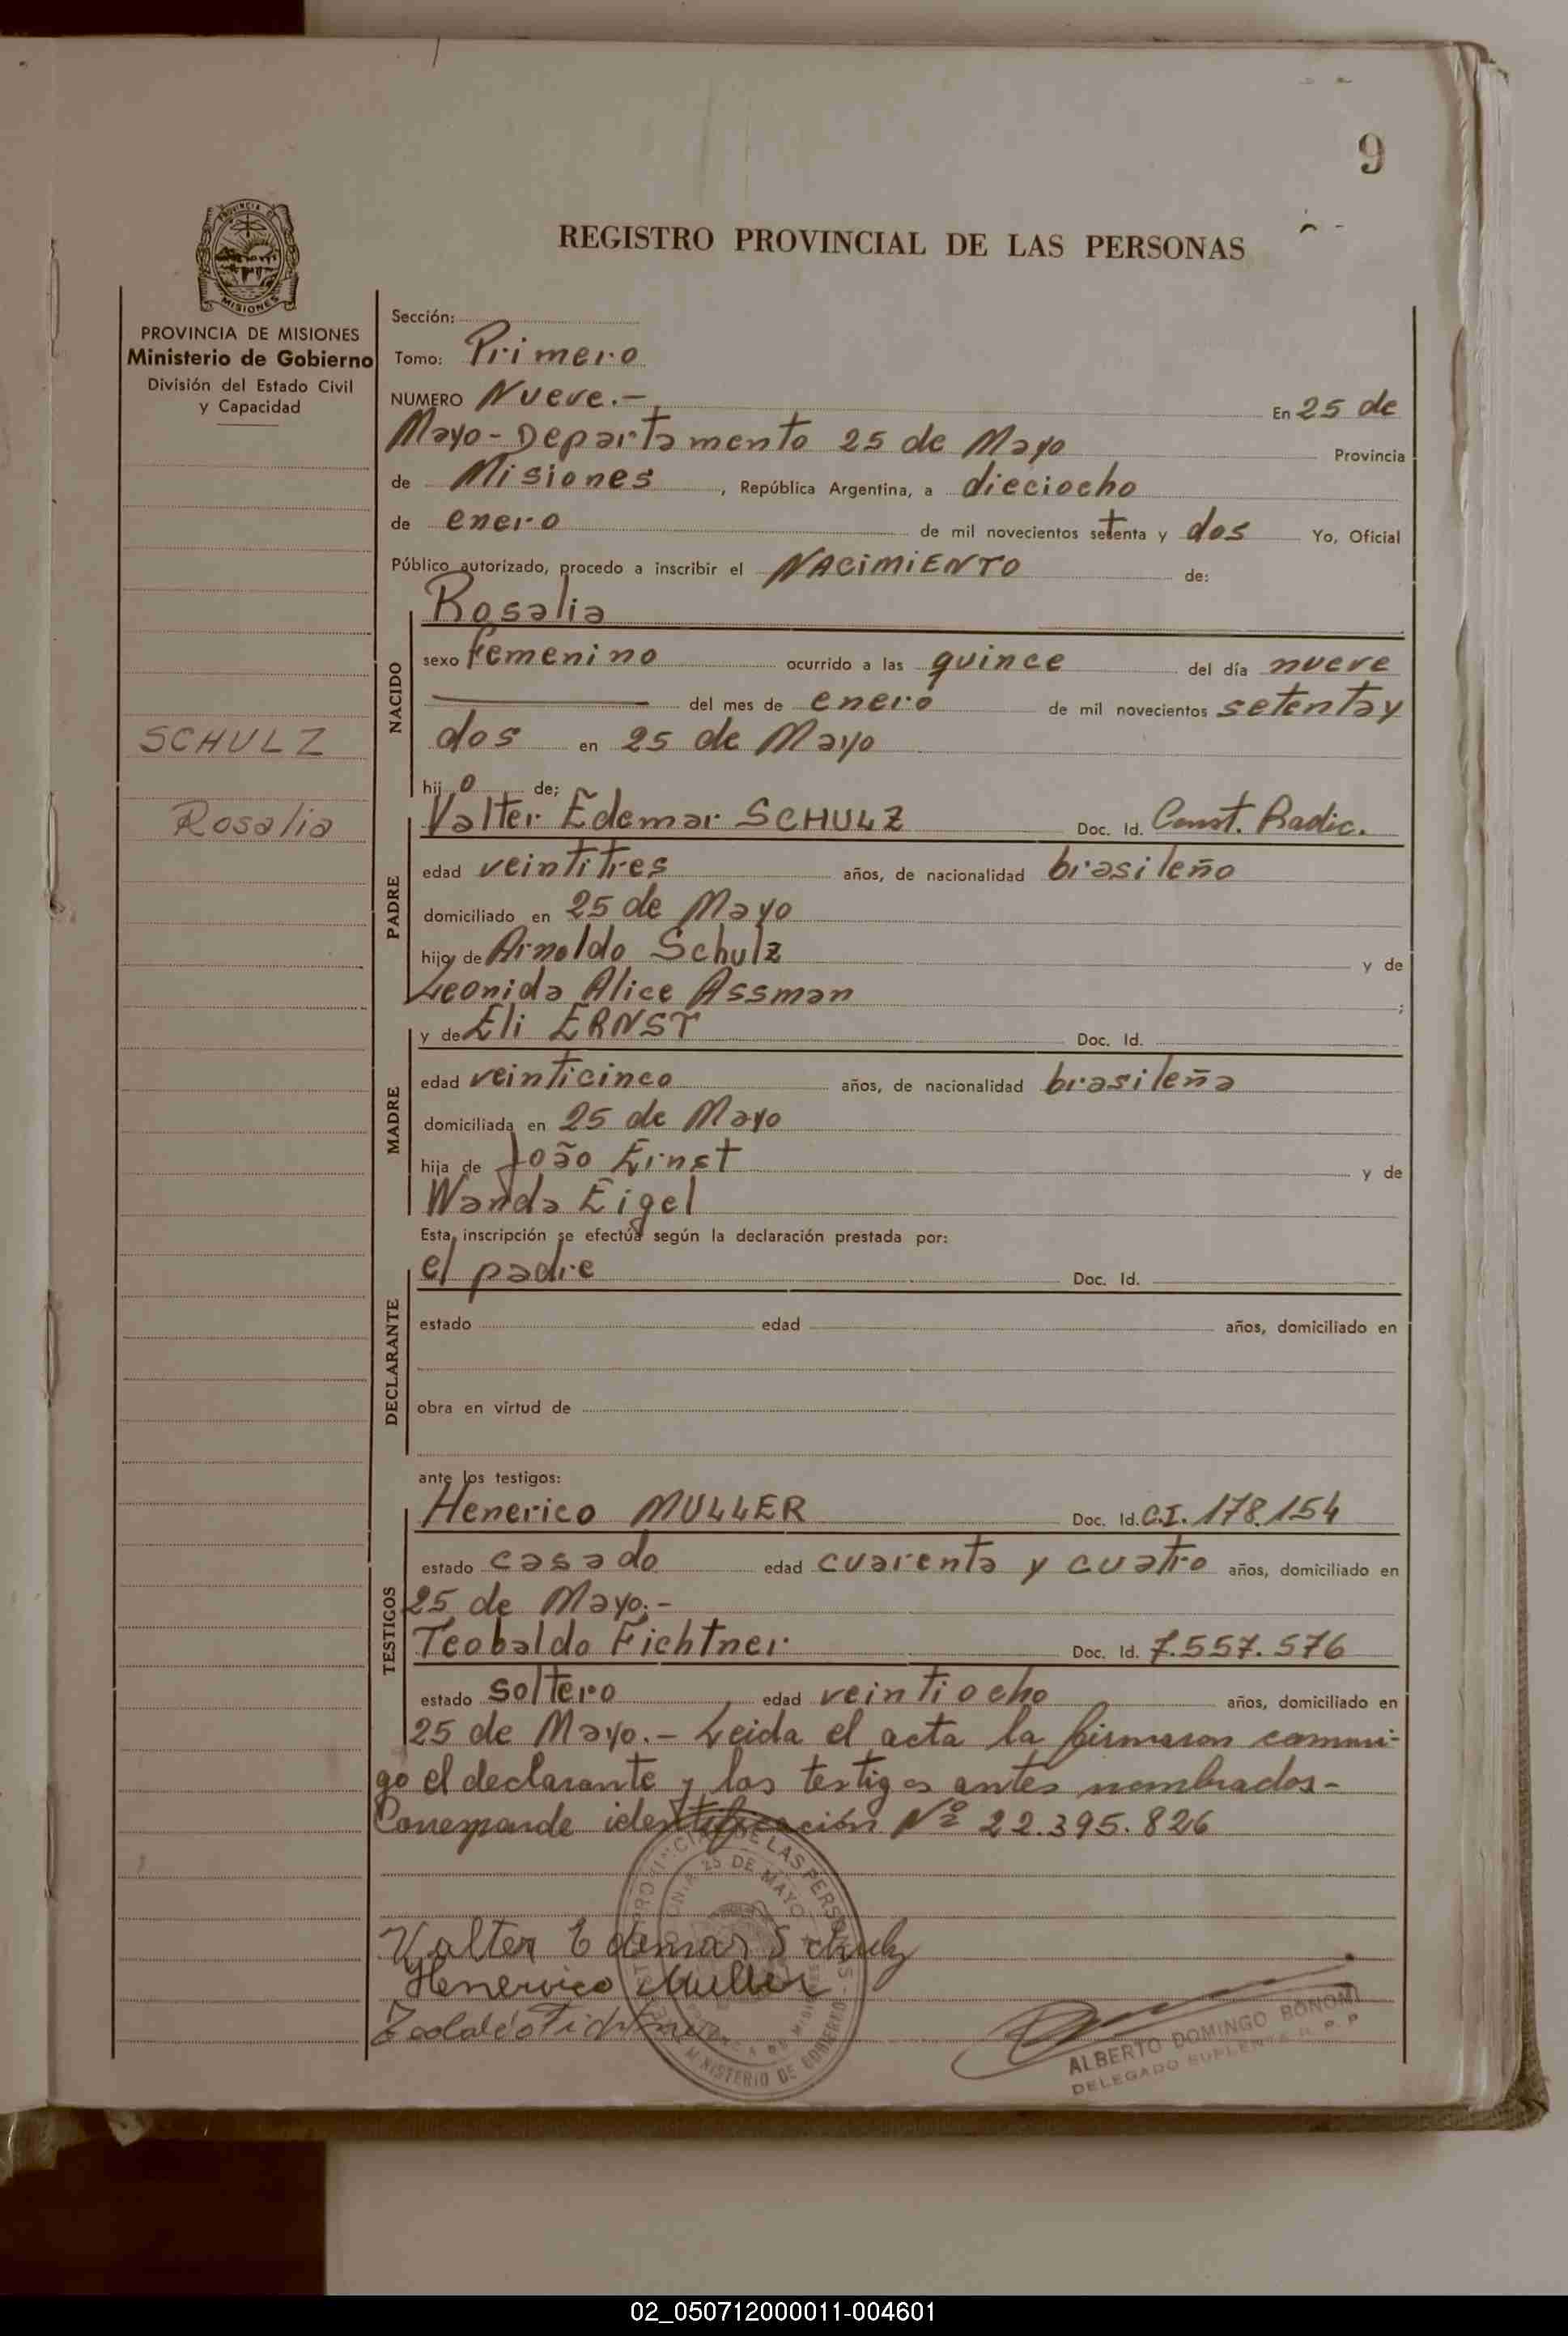 9
PROVINCIA DE
MISIONES
REGISTRO PROVINCIAL DE LAS PERSONAS
PROVINCIA DE MISIONES
Ministerio de Gobierno
División del Estado Civil
y Capacidad
SCHULZ
Rosalia
Sección:
Tomo: Primero
NUMERO Nueve.- En 25 de
Mayo - Departamento 25 de Mayo Provincia
de Misiones, República Argentina, a dieciocho
de enero de mil novecientos setenta y dos Yo, Oficial
Público autorizado, procedo a inscribir el NACIMIENTO de:
NACIDO
Rosalia
sexo femenino ocurrido a las quince del día nueve
del mes de enero de mil novecientos setenta y
dos en 25 de Mayo
hijo de;
PADRE
Valter Edemar SCHULZ Doc. Id. Const. Radic.
edad veintitres años, de nacionalidad brasileño
domiciliado en 25 de Mayo
hijo de Arnoldo Schulz y de
Leonida Alice Assman ;
MADRE
y de Eli ERNST Doc. Id.
edad veinticinco años, de nacionalidad brasileña
domiciliada en 25 de Mayo
hija de João Ernst y de
Wanda Eigel
Esta inscripción se efectúa según la declaración prestada por:
DECLARANTE
el padre Doc. Id.
estado edad años, domiciliado en
obra en virtud de
ante los testigos:
TESTIGOS
Henerico MULLER Doc. Id. C.I. 178.154
estado casado edad cuarenta y cuatro años, domiciliado en
25 de Mayo.-
Teobaldo Fichtner Doc. Id. 7.557.576
estado soltero edad veintiocho años, domiciliado en
25 de Mayo.- Leida el acta la firmaron conmi-
go el declarante y los testigos antes nombrados-
Corresponde identificación Nº 22.395.826
Valter Edemar Schulz
Henerico Muller
PROVINCIAL DE LAS PERSONAS
25 DE MAYO
MINISTERIO DE GOBIERNO
ALBERTO DOMINGO BONOMI
DELEGADO SUPLENTE R. P. P.
02_050712000011-004601